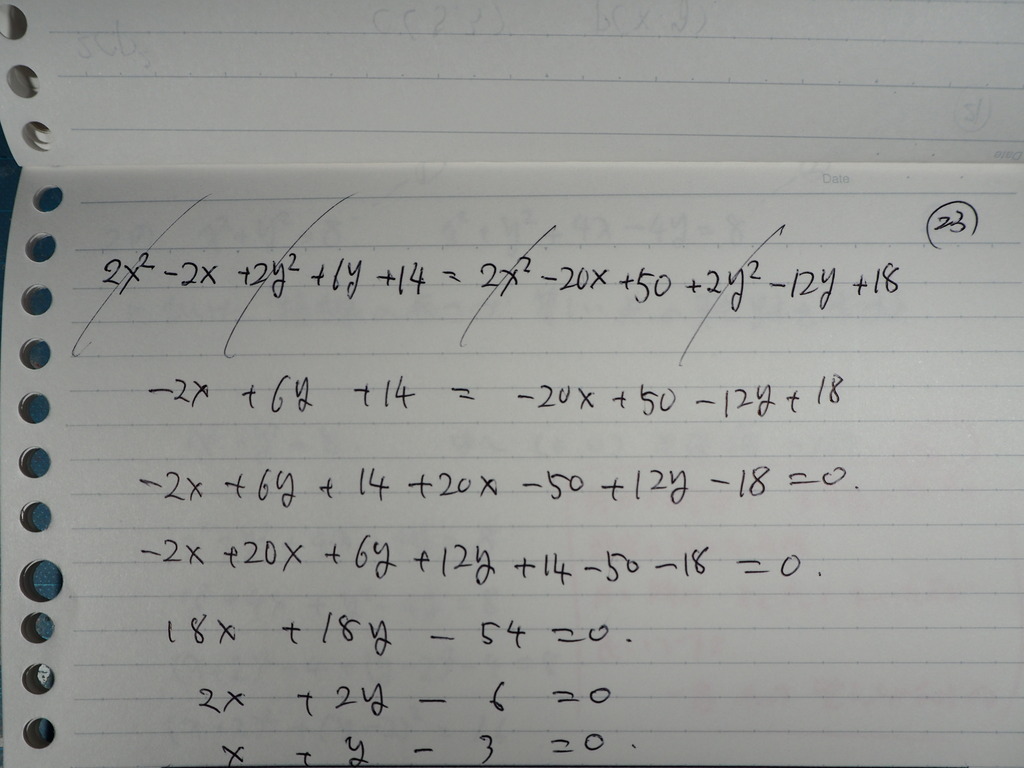 Date
(23)
2x² - 2x + 2y² + 6y + 14 = 2x² - 20x + 50 + 2y² - 12y + 18
-2x + 6y + 14 = -20x + 50 - 12y + 18
-2x + 6y + 14 + 20x - 50 + 12y - 18 = 0.
-2x + 20x + 6y + 12y + 14 - 50 - 18 = 0.
18x + 18y - 54 = 0.
2x + 2y - 6 = 0
x + y - 3 = 0.